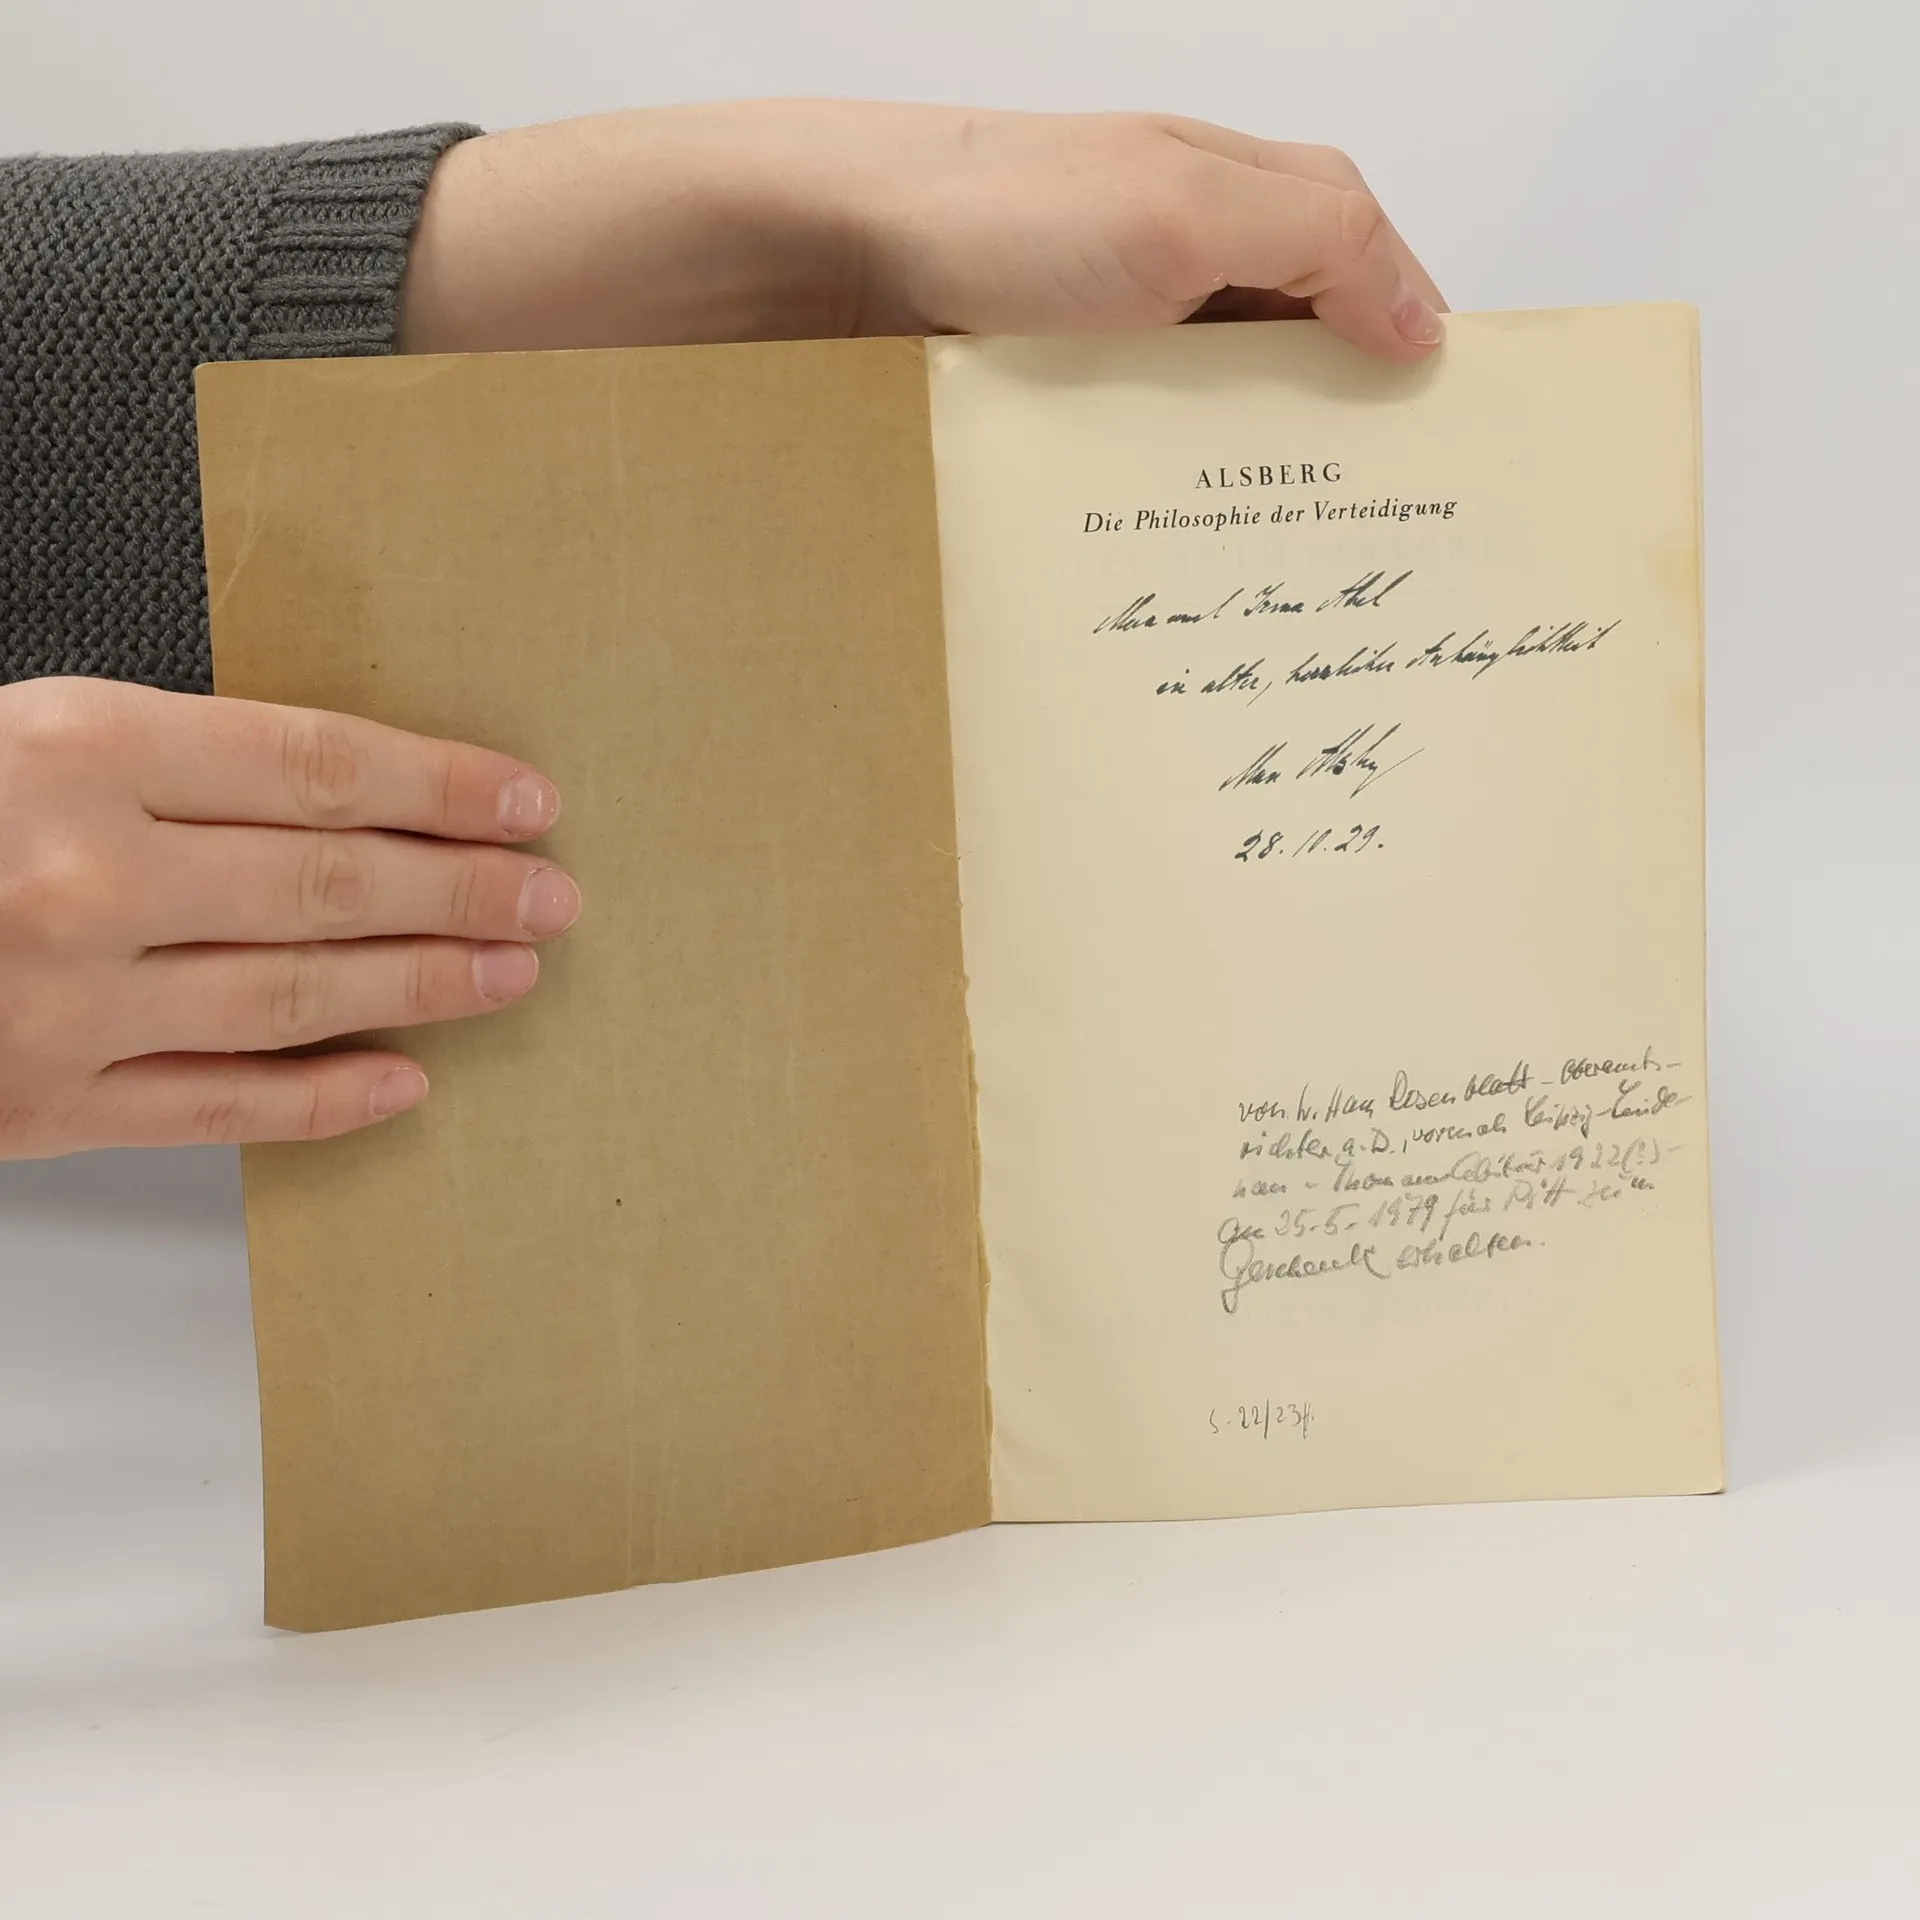 ALSBERG
Die Philosophie der Verteidigung
und Irma Abel
in alter, herzlicher Anhänglichkeit
Max Alsberg
28. 10. 29.
von Dr. Hans Rosenblatt - Oberamts-
richter a. D., vormals Leipzig-Linde-
nau - 1922(?) -
am 25.5.1979 für Pitt zum
Geschenk erhalten.
S. 22/23 ff.